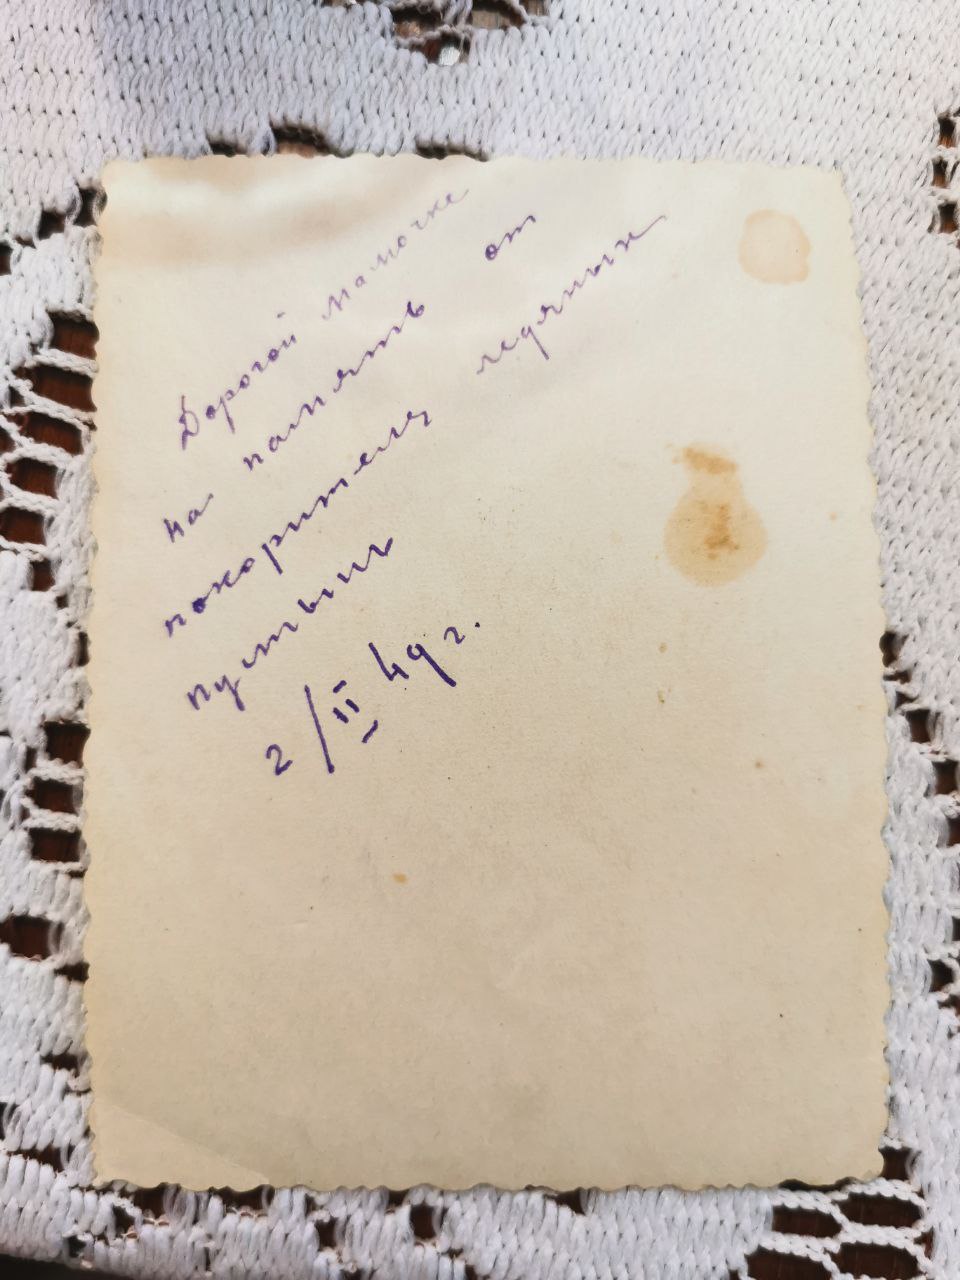 Дорогой мамочке
на память от
покорителя ледяных
пустынь
2/II 49 г.